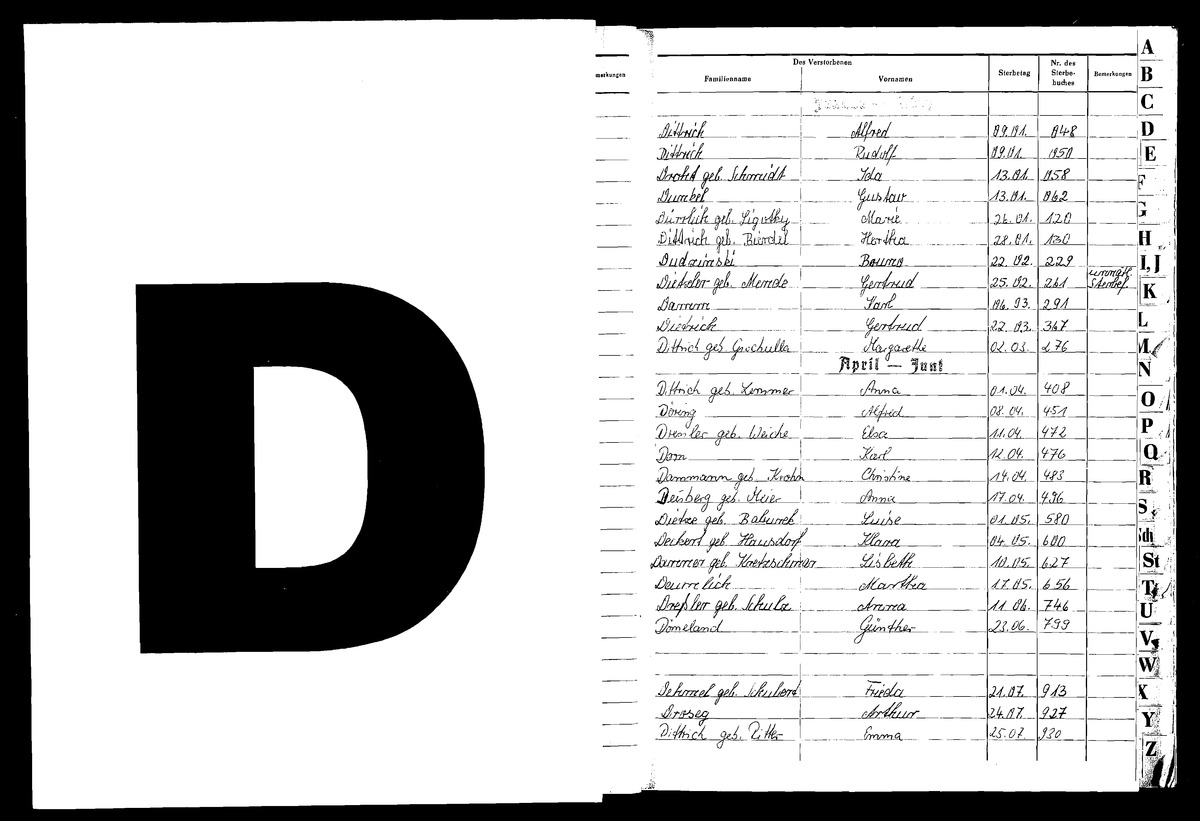 D
Bemerkungen
Des Verstorbenen
Familienname Vornamen Sterbetag Nr. des Sterbe-buches Bemerkungen
Dittrich Alfred 09.01. 048
Dittrich Rudolf 09.01. 050
geb. Schmidt Ida 13.01. 058
Dunkel Gustav 13.01. 062
geb. Marie 26.01. 120
Dittrich geb. Bierdel Hertha 28.01. 130
Dudzinski Bruno 22.02. 229
geb. Mende Gertrud 25.02. 261
Damm Karl 06.03. 291
Dietrich Gertrud 22.03. 347
Dittrich geb. Grochulla Margarethe 02.03. 276
April — Juni
Dittrich geb. Lemmer Anna 01.04. 408
Döring Alfred 08.04. 451
Dressler geb. Weiche Elsa 11.04. 472
Dorn Karl 12.04. 476
Dammann geb. Krohn Christine 14.04. 483
geb. Meier Anna 17.04. 496
Dietze geb. Luise 01.05. 580
Deckert geb. Hausdorf Klara 04.05. 600
Dammer geb. Kretzschmer Lisbeth 10.05. 627
Deumlich Martha 17.05. 656
Dreßler geb. Schulz Anna 11.06. 746
Dömeland Günther 23.06. 799
Dehmel geb. Schubert Frieda 21.07. 913
Arthur 24.07. 927
Dittrich geb. Ritter Emma 25.07. 930
A
B
C
D
E
F
G
H
I, J
K
L
M
N
O
P
Q
R
S
Sch
St
T
U
V
W
X
Y
Z